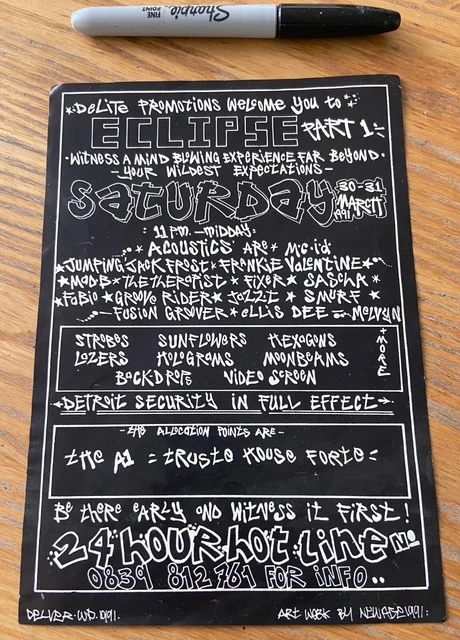 Sharpie FINE POINT
DELITE PROMOTIONS WELCOME YOU TO
ECLIPSE PART 1
WITNESS A MIND BLOWING EXPERIENCE FAR BEYOND
- YOUR WILDEST EXPECTATIONS -
SATURDAY 30-31 MARCH 1991
: 11 PM - MIDDAY :
ACOUSTICS ARE * M.C.ID
* JUMPING JACK FROST * FRANKIE VALENTINE *
* MAD B * THE THERAPIST * FIXER * SASCHA *
* FABIO * GROOVE RIDER * JAZZI * SMURF *
- FUSION GROOVER * ELLIS DEE - MELVYN
STROBES SUNFLOWERS HEXOGONS
LAZERS HOLOGRAMS MOONBEAMS
BACKDROPS VIDEO SCREEN
+ MORE
DETROIT SECURITY IN FULL EFFECT
- THE ALLOCATION POINTS ARE -
THE A1 = TRUSTE HOUSE FORTE =
BE THERE EARLY AND WITNESS IT FIRST!
24 HOUR HOT LINE No
0839 812761 FOR INFO..
DELVER. WD. 1991.
ART WORK BY NEWAGE 1991.